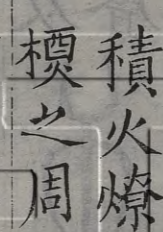 積火燎
槱之周